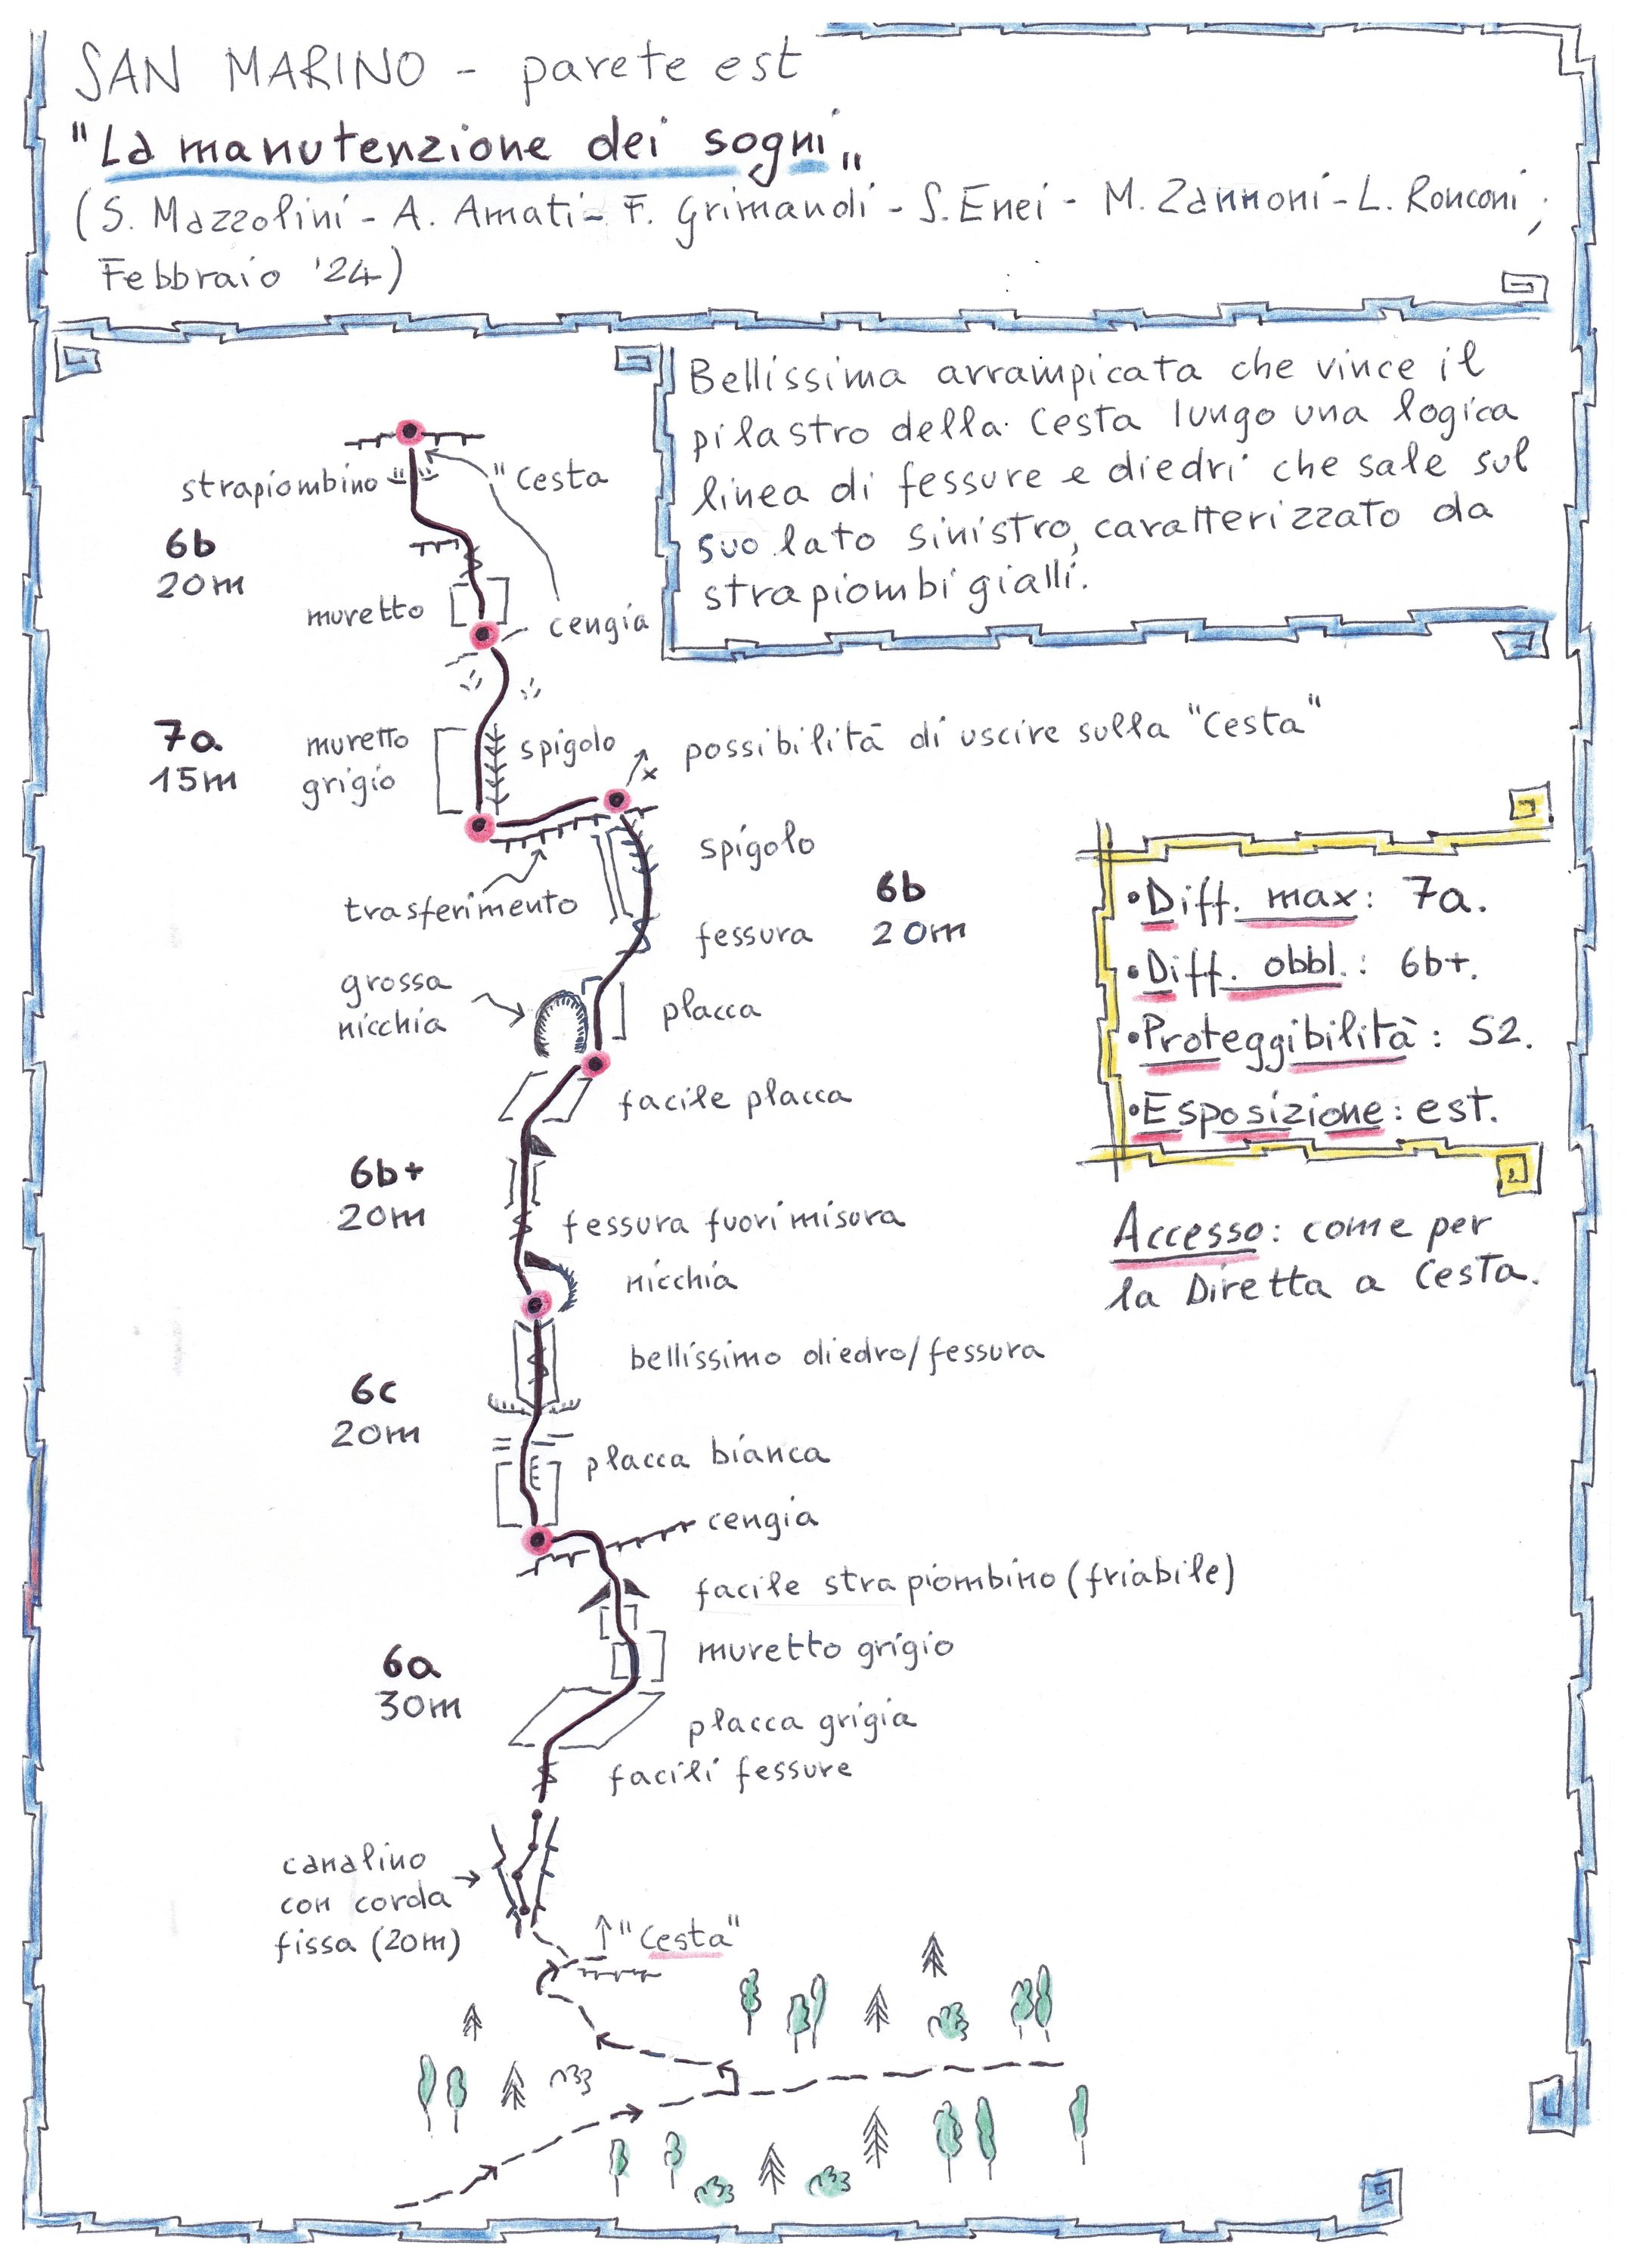 SAN MARINO - parete est
"La manutenzione dei sogni"
(S. Mazzolini - A. Amati - F. Grimandi - S. Enei - M. Zannoni - L. Ronconi;
Febbraio '24)
Bellissima arrampicata che vince il
pilastro della Cesta lungo una logica
linea di fessure e diedri che sale sul
suo lato sinistro, caratterizzato da
strapiombi gialli.
strapiombino
"Cesta
6b
20m
muretto
cengia
7a
15m
muretto
grigio
spigolo
possibilità di uscire sulla "Cesta"
spigolo
trasferimento
6b
20m
fessura
grossa
nicchia
placca
facile placca
6b+
20m
fessura fuori misura
nicchia
bellissimo diedro/fessura
6c
20m
placca bianca
cengia
facile strapiombino (friabile)
muretto grigio
6a
30m
placca grigia
facili fessure
canalino
con corda
fissa (20m)
"Cesta"
• Diff. max: 7a.
• Diff. obbl.: 6b+.
• Proteggibilità: S2.
• Esposizione: est.
Accesso: come per
la Diretta a Cesta.